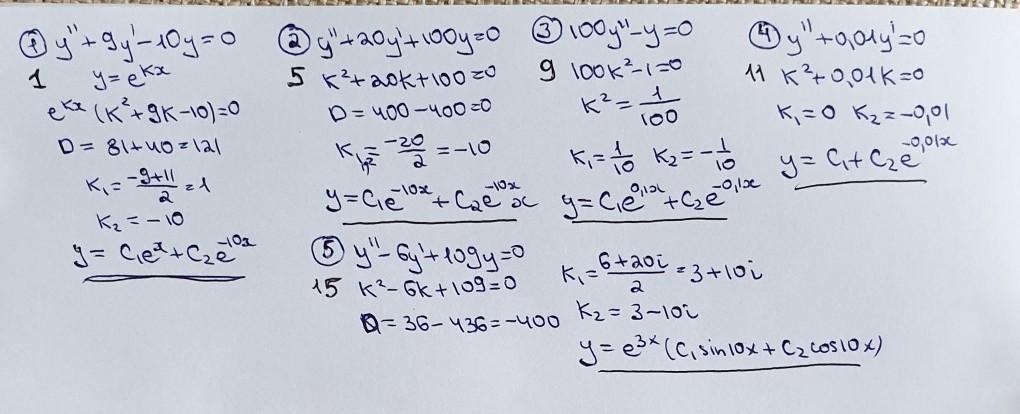 ① y''+9y'-10y=0
1 y=e^{kx}
e^{kx}(k²+9k-10)=0
D=81+40=121
k₁=\frac{-9+11}{2}=1
k₂=-10
y=C₁e^{x}+C₂e^{-10x}
② y''+20y'+100y=0
5 k²+20k+100=0
D=400-400=0
k₁,₂=\frac{-20}{2}=-10
y=C₁e^{-10x}+C₂e^{-10x}x
③ 100y''-y=0
9 100k²-1=0
k²=\frac{1}{100}
k₁=\frac{1}{10} k₂=-\frac{1}{10}
y=C₁e^{0,1x}+C₂e^{-0,1x}
④ y''+0,01y'=0
11 k²+0,01k=0
k₁=0 k₂=-0,01
y=C₁+C₂e^{-0,01x}
⑤ y''-6y'+109y=0
15 k²-6k+109=0
D=36-436=-400
k₁=\frac{6+20i}{2}=3+10i
k₂=3-10i
y=e^{3x}(C₁sin10x+C₂cos10x)